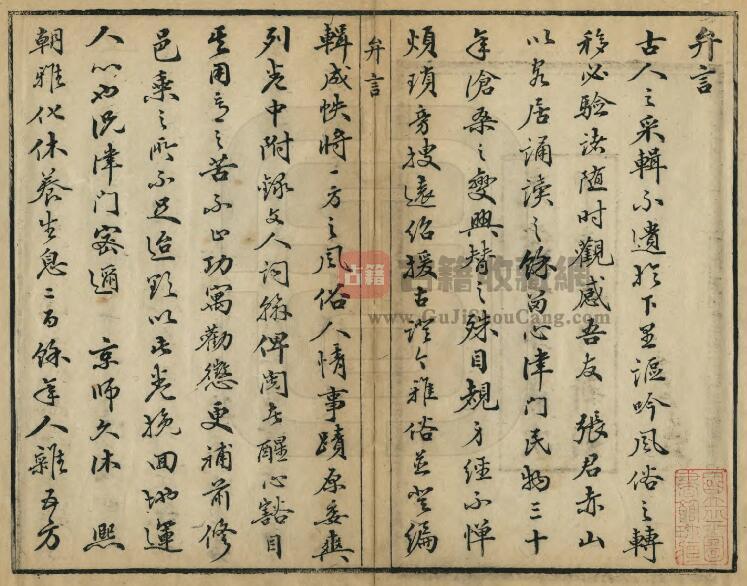 弁言
古人之采輯不遺於下里謳吟風俗之轉
移必驗諸隨時觀感吾友 張君赤山
以家居誦讀之餘留心津門民物三十
年滄桑之變興替之殊目規方經不憚
煩瑣旁搜遠紹援古證今雅俗並登編
弁言
輯成帙將一方之風俗人情事蹟原委爽
列卷中附錄文人詞翰俾閱者醒心豁目
其用意之苦不止功寓勸懲更補前修
邑乘之所不足迨欲以此卷挽回地運
人心也況津門密邇 京師久沐 熙
朝雅化休養生息二百餘年人雜五方
古籍
古籍收藏網
www.GuJiShouCang.com